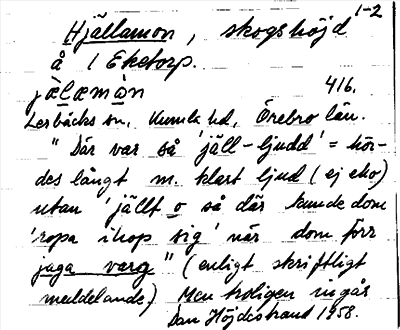 Hjällamon, skogshöjd 1-2
å 1 Eketorp.
jælæmån 416.
Lerbäcks sn, Kumla hd, Örebro län.
"Där var så 'jäll-ljudd' = hör-
des långt m. klart ljud (ej eko)
utan 'jällt o så där kunde dom
'ropa ihop sig' när dom förr
jaga varg" (enligt skriftligt
meddelande.) Men troligen ingår
Dan Höjdestrand 1958.